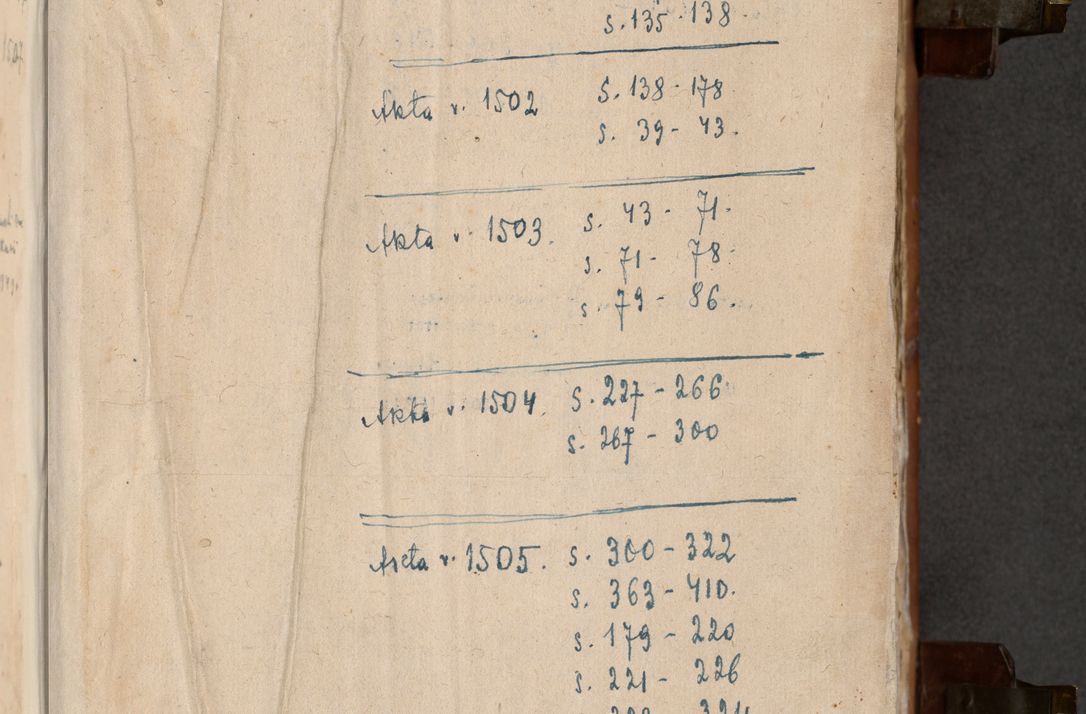 s. 135 - 138
Akta r. 1502 S. 138 - 178
s. 39 - 43.
Akta r. 1503. s. 43 - 71.
s. 71 - 78.
s. 79 - 86.
Akta r. 1504. S. 227 - 266
s. 267 - 300
Akta r. 1505. s. 300 - 322
s. 363 - 410.
s. 179 - 220
s. 221 - 226